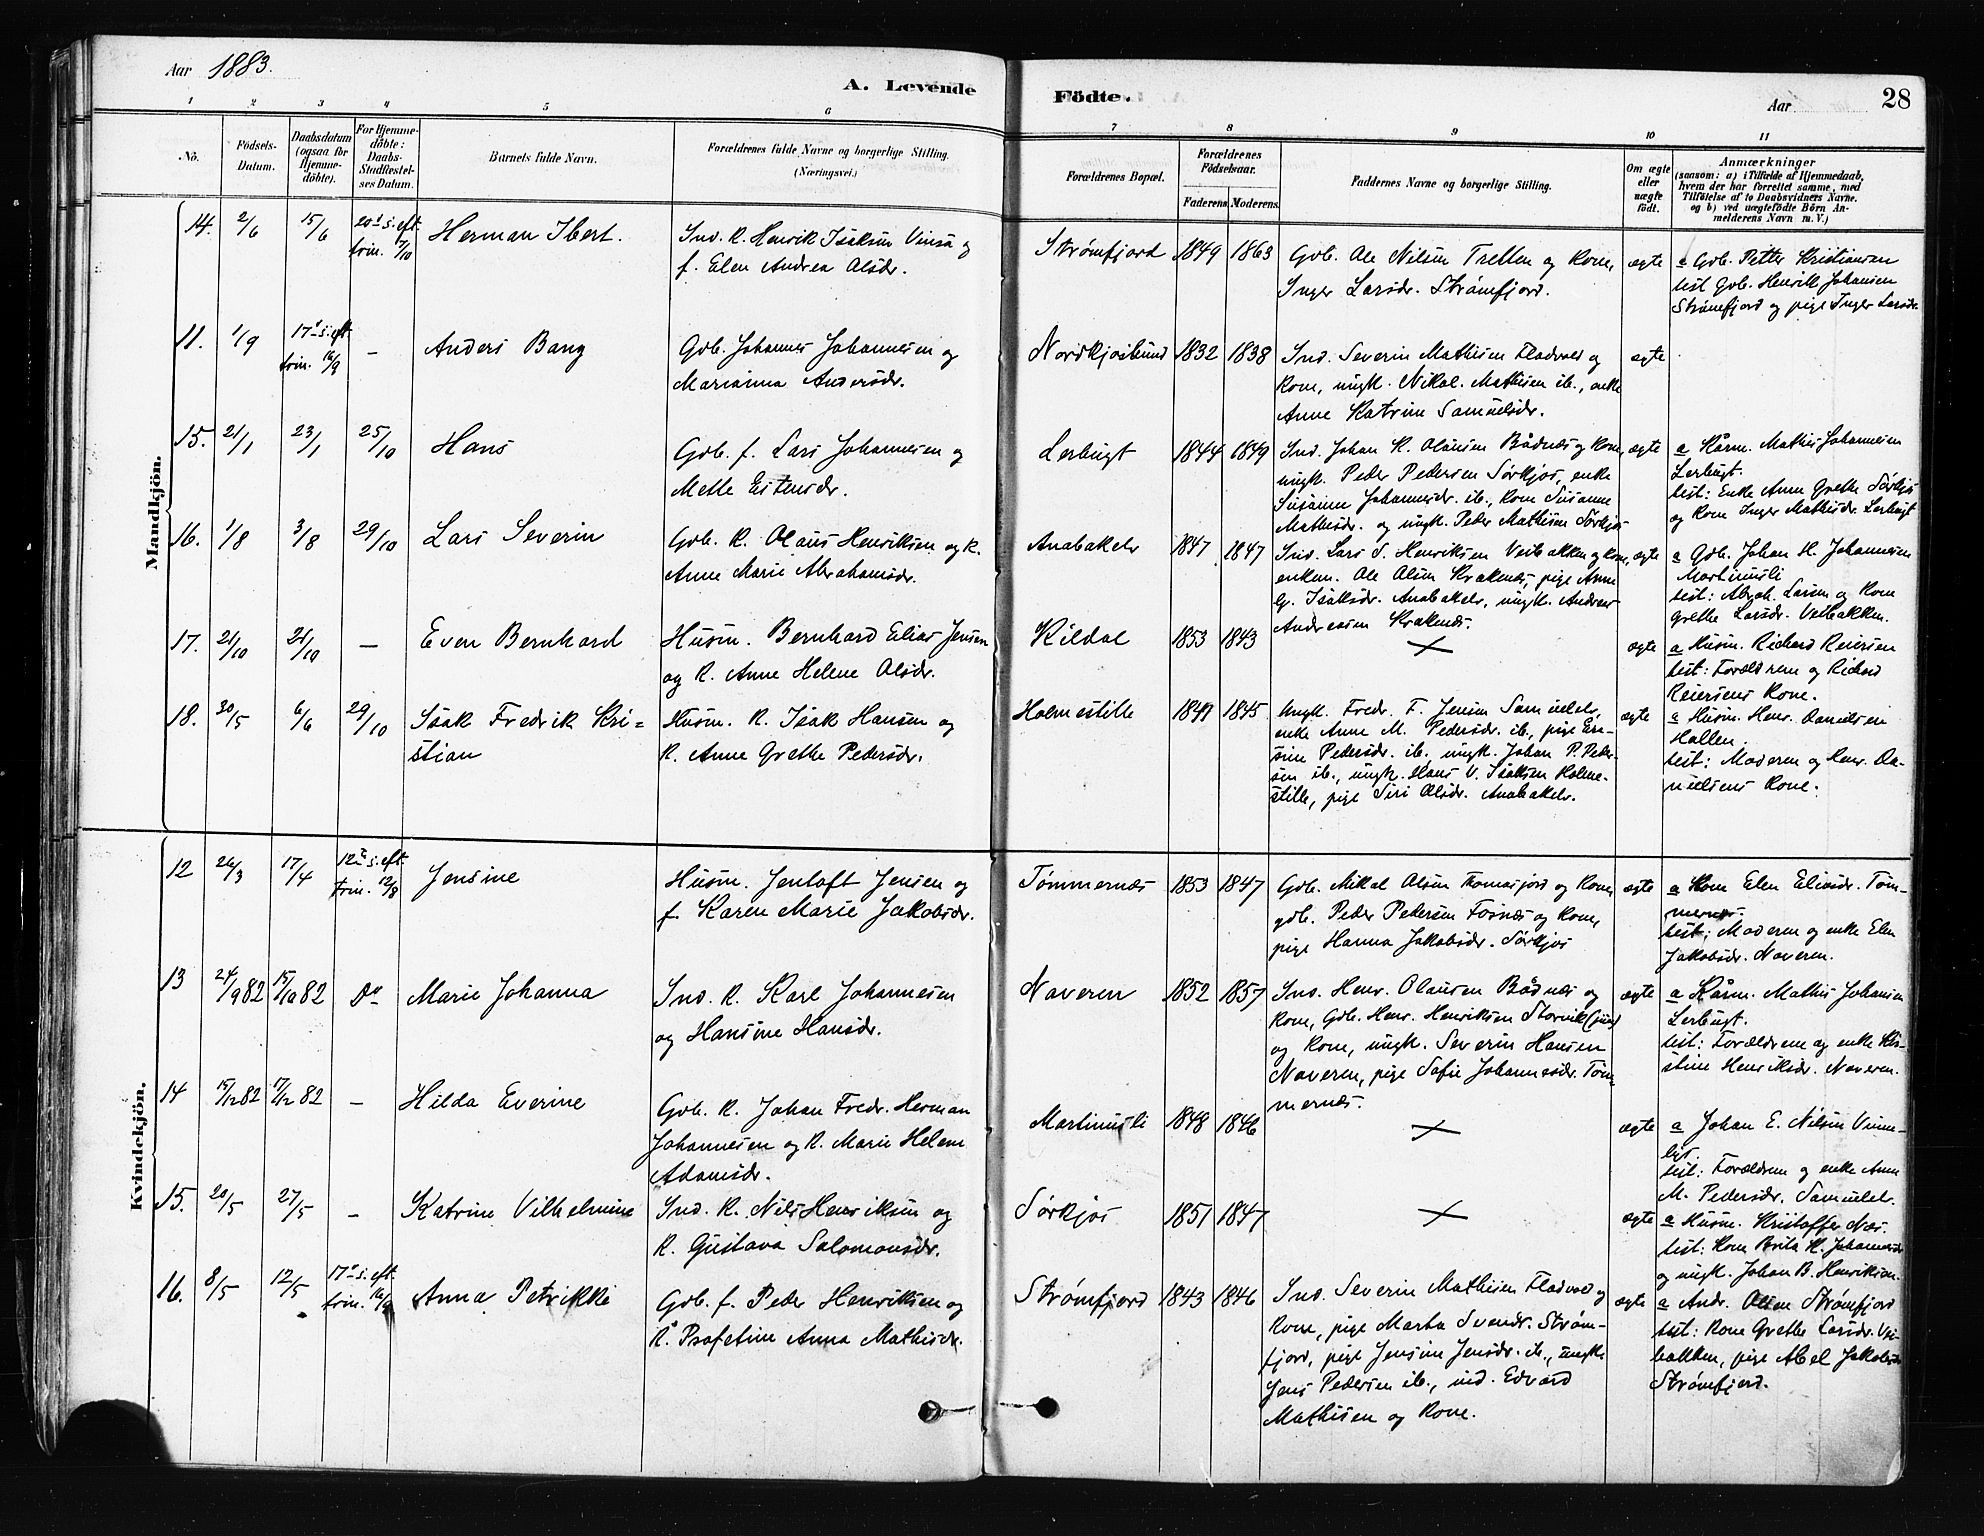 Aar 1883.
A. Levende
Födte.
Aar
28
1 2 3 4 5 6 7 8 9 10 11
No.
Födsels-
Datum.
Daabsdatum
(ogsaa for
Hjemme-
döbte).
For Hjemme-
döbte:
Daabs-
Stadfæstel-
ses Datum.
Barnets fulde Navn.
Forældrenes fulde Navne og borgerlige Stilling.
(Næringsvei.)
Forældrenes Bopæl.
Forældrenes
Födselsaar.
Faderens Moderens
Faddernes Navne og borgerlige Stilling.
Om ægte
eller
uægte
födt.
Anmærkninger
(saasom: a) i Tilfælde af Hjemmedaab,
hvem der har forrettet samme, med
Tilföielse af to Daabsvidners Navne.
og b) ved uægtefödte Börn An-
melderens Navn m. V.)
Mandkjön.
14. 2/6 15/6 20de s. eft.
trin. 7/10
Herman Ibert.
Ind. K. Henrik Isaksen Vinsa og
f. Elen Andrea Olsdr.
Strømfjord 1849 1863
Gdb. Ole Nilsen Tretten og Kone,
Inger Larsdr. Strømfjord.
ægte
a Gdb. Petter Kristiansen
test Gdb. Henrik Johansen
Strømfjord og pige Inger Larsdr.
11. 1/9 17de s. eft.
trin. 16/9 –
Anders Bang
Gdb. Johannes Johannesen og
Marianna Andersdr.
Nordkjosbund 1832 1838
Ind. Severin Mathisen Fladvold og
Kone, ungk. Nikol. Mathisen ib., enke
Anne Katrine Samuelsdr.
ægte
15. 21/1 23/1 25/10
Hans
Gdb. f. Lars Johannesen og
Mette Estensdr.
Lerbugt 1844 1849
Ind. Johan K. Olausen Bådnæs og Kone,
ungk. Peder Pedersen Sørkjos, enke
Susanne Johannesdr. ib., Kone Susanne
Mathisdr. og ungk. Peder Mathisen Sørkjos
ægte
a Kårm. Mathis Johannesen
Lerbugt.
test: Enke Anne Grethe Sørkjos
og Kone Inger Mathisdr. Lerbugt
16. 1/8 3/8 29/10
Lars Severin
Gdb. K. Olaus Henriksen og K.
Anne Marie Abrahamsdr.
Anabakelv 1847 1847
Ind. Lars S. Henriksen Veibakken og Kone,
enkem. Ole Olsen Kraknæs, pige Anne
G. Isaksdr. Anabakelv, ungk. Andreas
Andreasen Kraknæs.
ægte
a Gdb. Johan H. Johannesen
Martinusli
test: Abrah. Larsen og Kone
Grethe Larsdr. Veibakken.
17. 21/10 21/10 –
Even Bernhard
Husm. Bernhard Elias Jensen
og K. Anne Helene Olsdr.
Kildal 1853 1843
×
ægte
a Husm. Richard Reiersen
test: Forældrene og Richard
Reiersens Kone.
18. 30/5 6/6 29/10
Isak Fredrik Kri-
stian
Husm. K. Isak Hansen og
K. Anne Grethe Pedersdr.
Holmestille 1845
Ungk. Fredr. F. Jensen Samuelelv,
enke Anne M. Pedersdr. ib., pige
Pedersdr. ib., ungk. Johan P. Peder-
sen ib., ungk. Hans V. Isaksen Holme-
stille, pige Siri Olsdr. Anabakelv.
ægte
a Husm. Henr. Danielsen
Hallen.
test: Moderen og Henr. Da-
nielsens Kone.
Kvindekjön.
12 26/3 17/4 12te s. eft.
trin. 12/8
Jensine
Husm. Jentoft Jensen og
f. Karen Marie Jakobsdr.
Tømmernæs 1853 1847
Gdb. Nikol Olsen Thomasjord og Kone,
gdb. Peder Pedersen Fosnæs og Kone,
pige Hanna Jakobsdr. Sørkjos
ægte
a Kone Elen Eliasdr. Tøm-
mernæs.
test: Moderen og enke Elen
Jakobsdr. Naveren.
13 24/9 82 15/10 82 Do
Marie Johanna
Ind. K. Karl Johannesen
og Hansine Hansdr.
Naveren 1852 1857
Ind. Henr. Olausen Bådnæs og
Kone, Gdb. Henr. Henriksen Storvik (jun)
og Kone, ungk. Severin Hansen
Naveren, pige Sofie Johannesdr. Tøm-
mernæs.
ægte
a Kårm. Mathis Johansen
Lerbugt.
test: Forældrene og enke Kri-
stine Henriksdr. Naveren.
14 15/12 82 17/12 82 –
Hilda Everine
Gdb. K. Johan Fredr. Herman
Johannesen og K. Marie Helene
Adamsdr.
Martinusli 1848 1846
×
ægte
a Johan E. Nilsen Vinne-
lyst.
test: Forældrene og enke Anne
M. Pedersdr. Samuelelv.
15. 20/5 27/5 –
Katrine Vilhelmine
Ind. K. Nils Henriksen og
K. Gustava Salomonsdr.
Sørkjos 1851 1847
×
ægte
a Husm. Kristoffer Næs.
test: Kone Brita K. Johannesdr
og ungk. Johan B. Henriksen.
16. 8/5 12/5 17de s. eft.
trin. 16/9
Anna Petrikke
Gdb. f. Peder Henriksen og
K. Profetine Anna Mathisdr.
Strømfjord 1843 1846
Ind. Severin Mathisen Fladvold og
Kone, pige Marta Svendr. Strøm-
fjord, pige Jensine Jensdr. ib., ungk.
Jens Pedersen ib., ind. Edvard
Mathisen og Kone.
ægte
a Andr. Olsen Strømfjord
test: Kone Grethe Larsdr. Vei-
bakken, pige Abel Jakobsdr
Strømfjord.